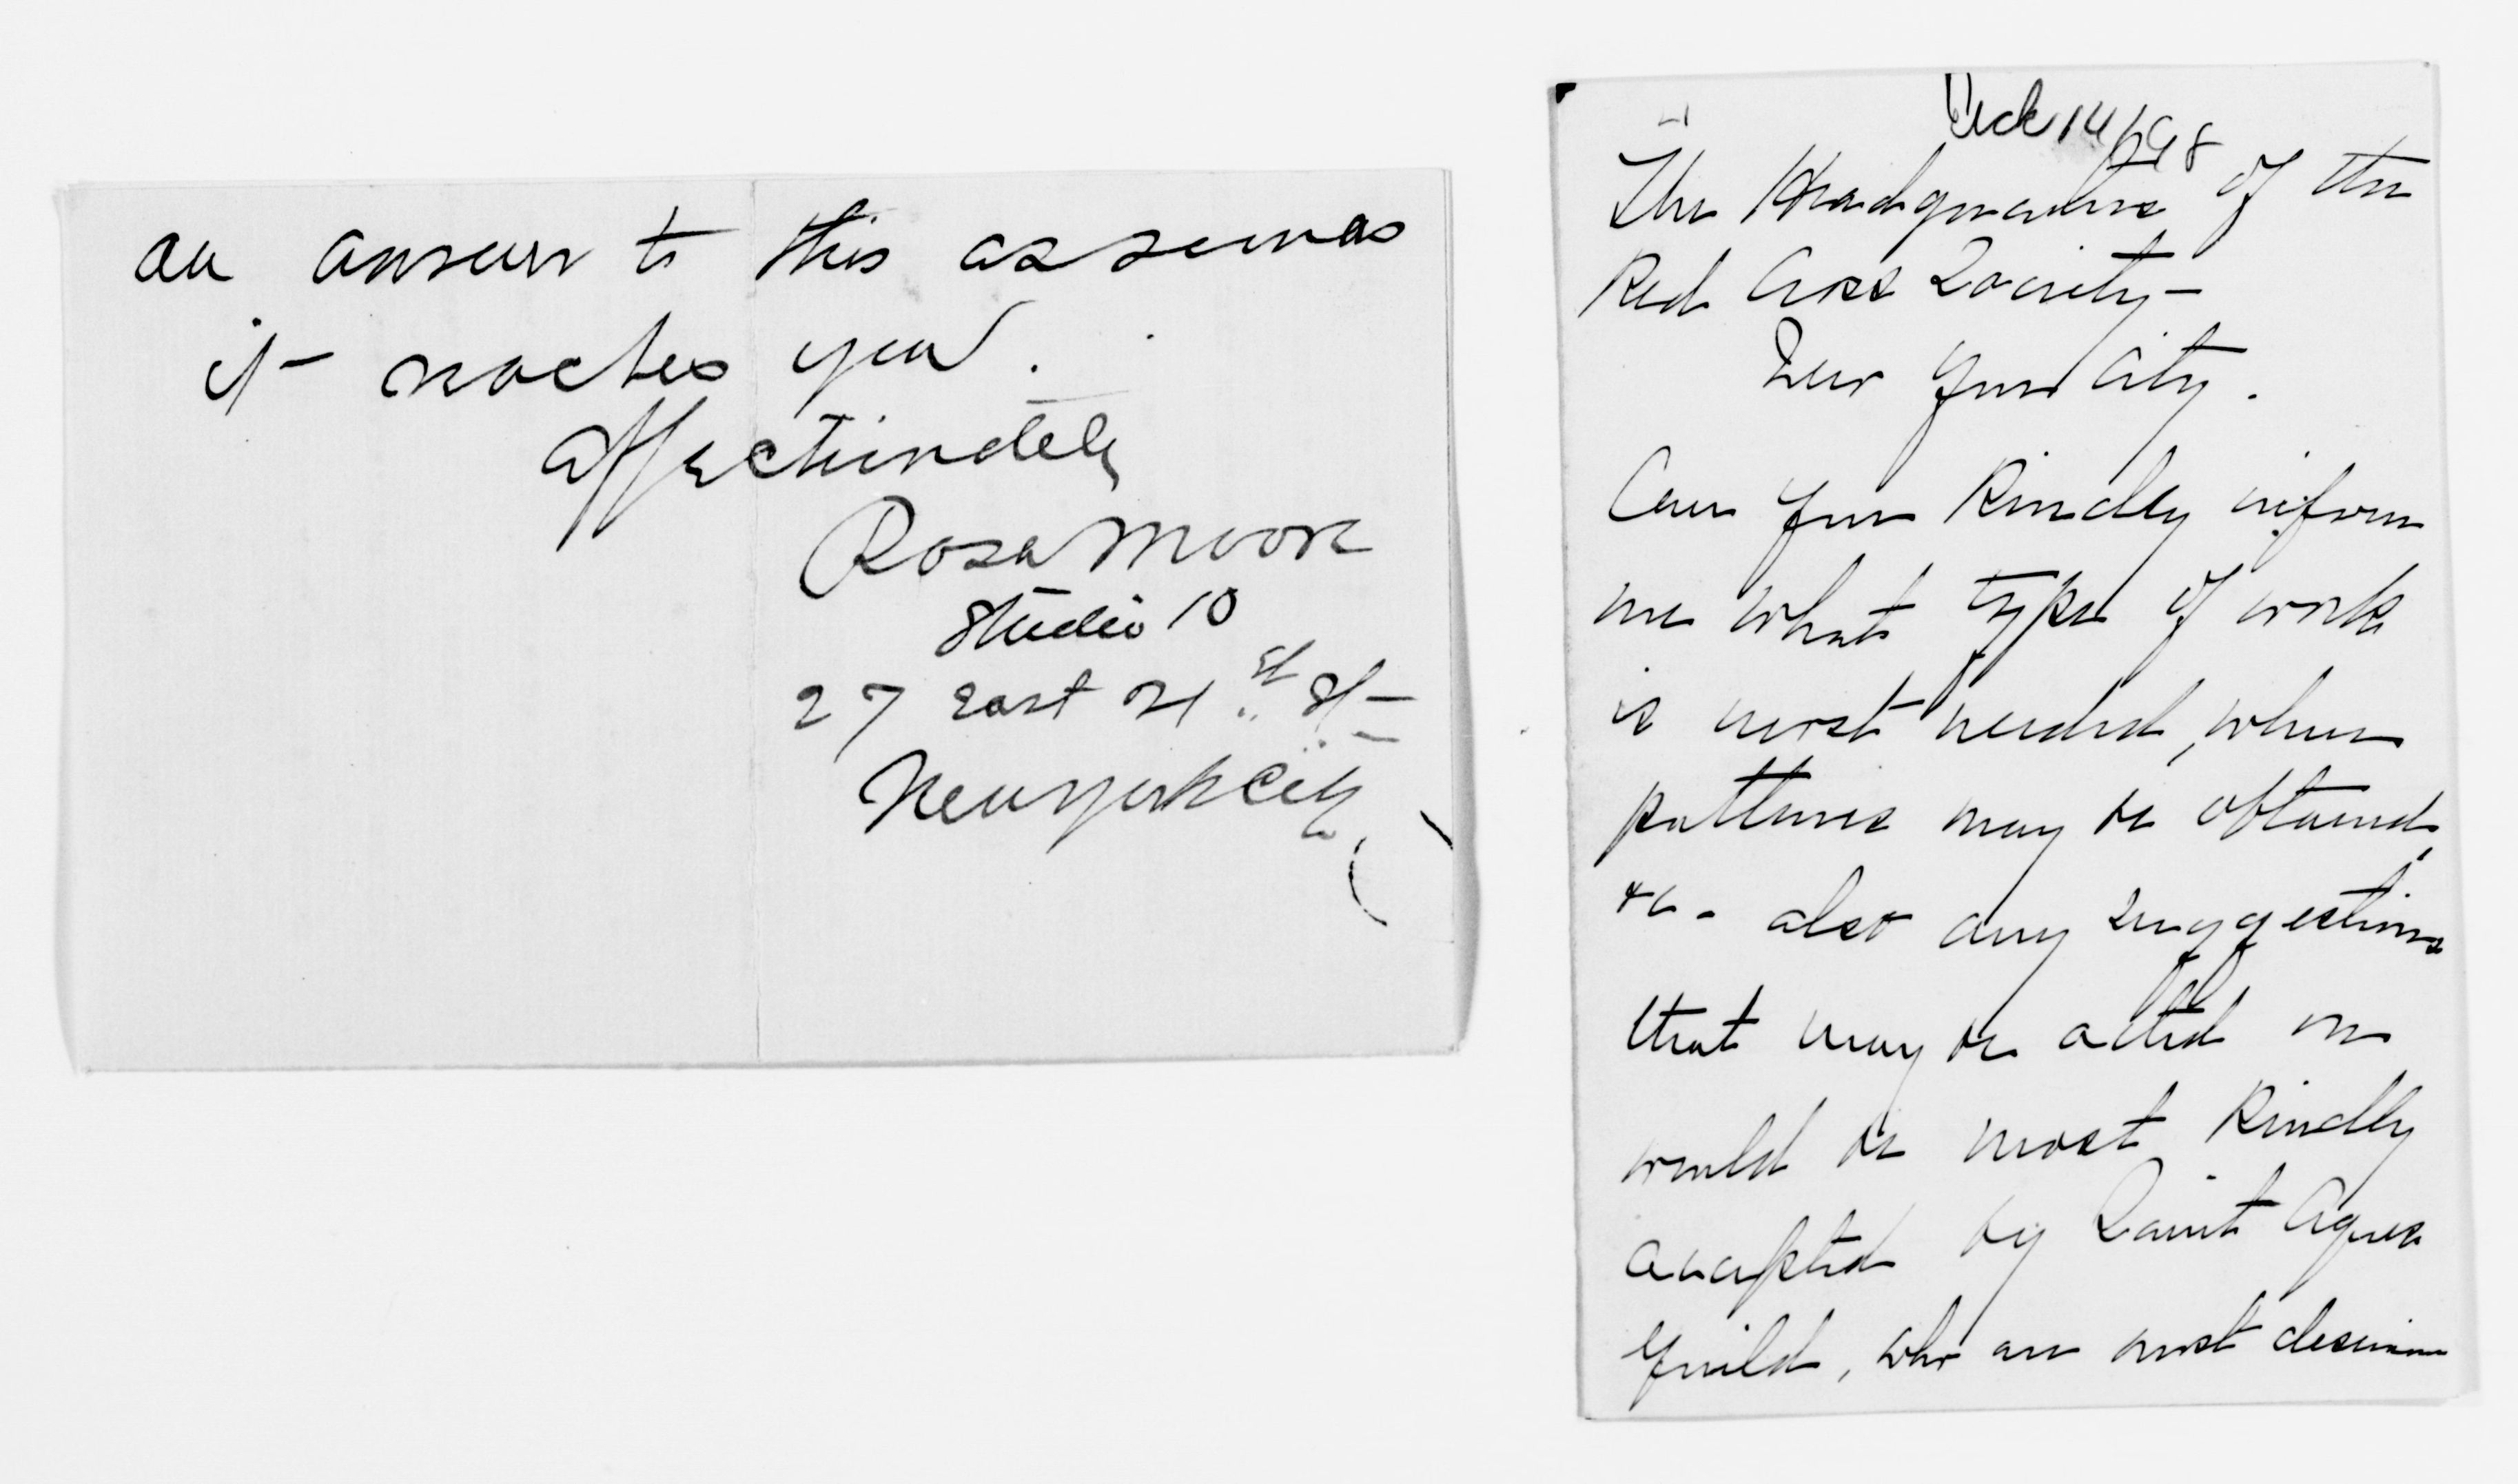 an answer to this as soon as
it reaches you.
Affectionately
Rosa Moore
Studio 10
27 East 21st St
New York City
14/98
The Headquarters of the
Red Cross Society –
New York City.
Can you kindly inform
me what type of work
is most needed, where
patterns may be obtained,
&c. also any suggestions
that may be acted on
would be most kindly
accepted by Saint Agnes
Guild, who are most desirous